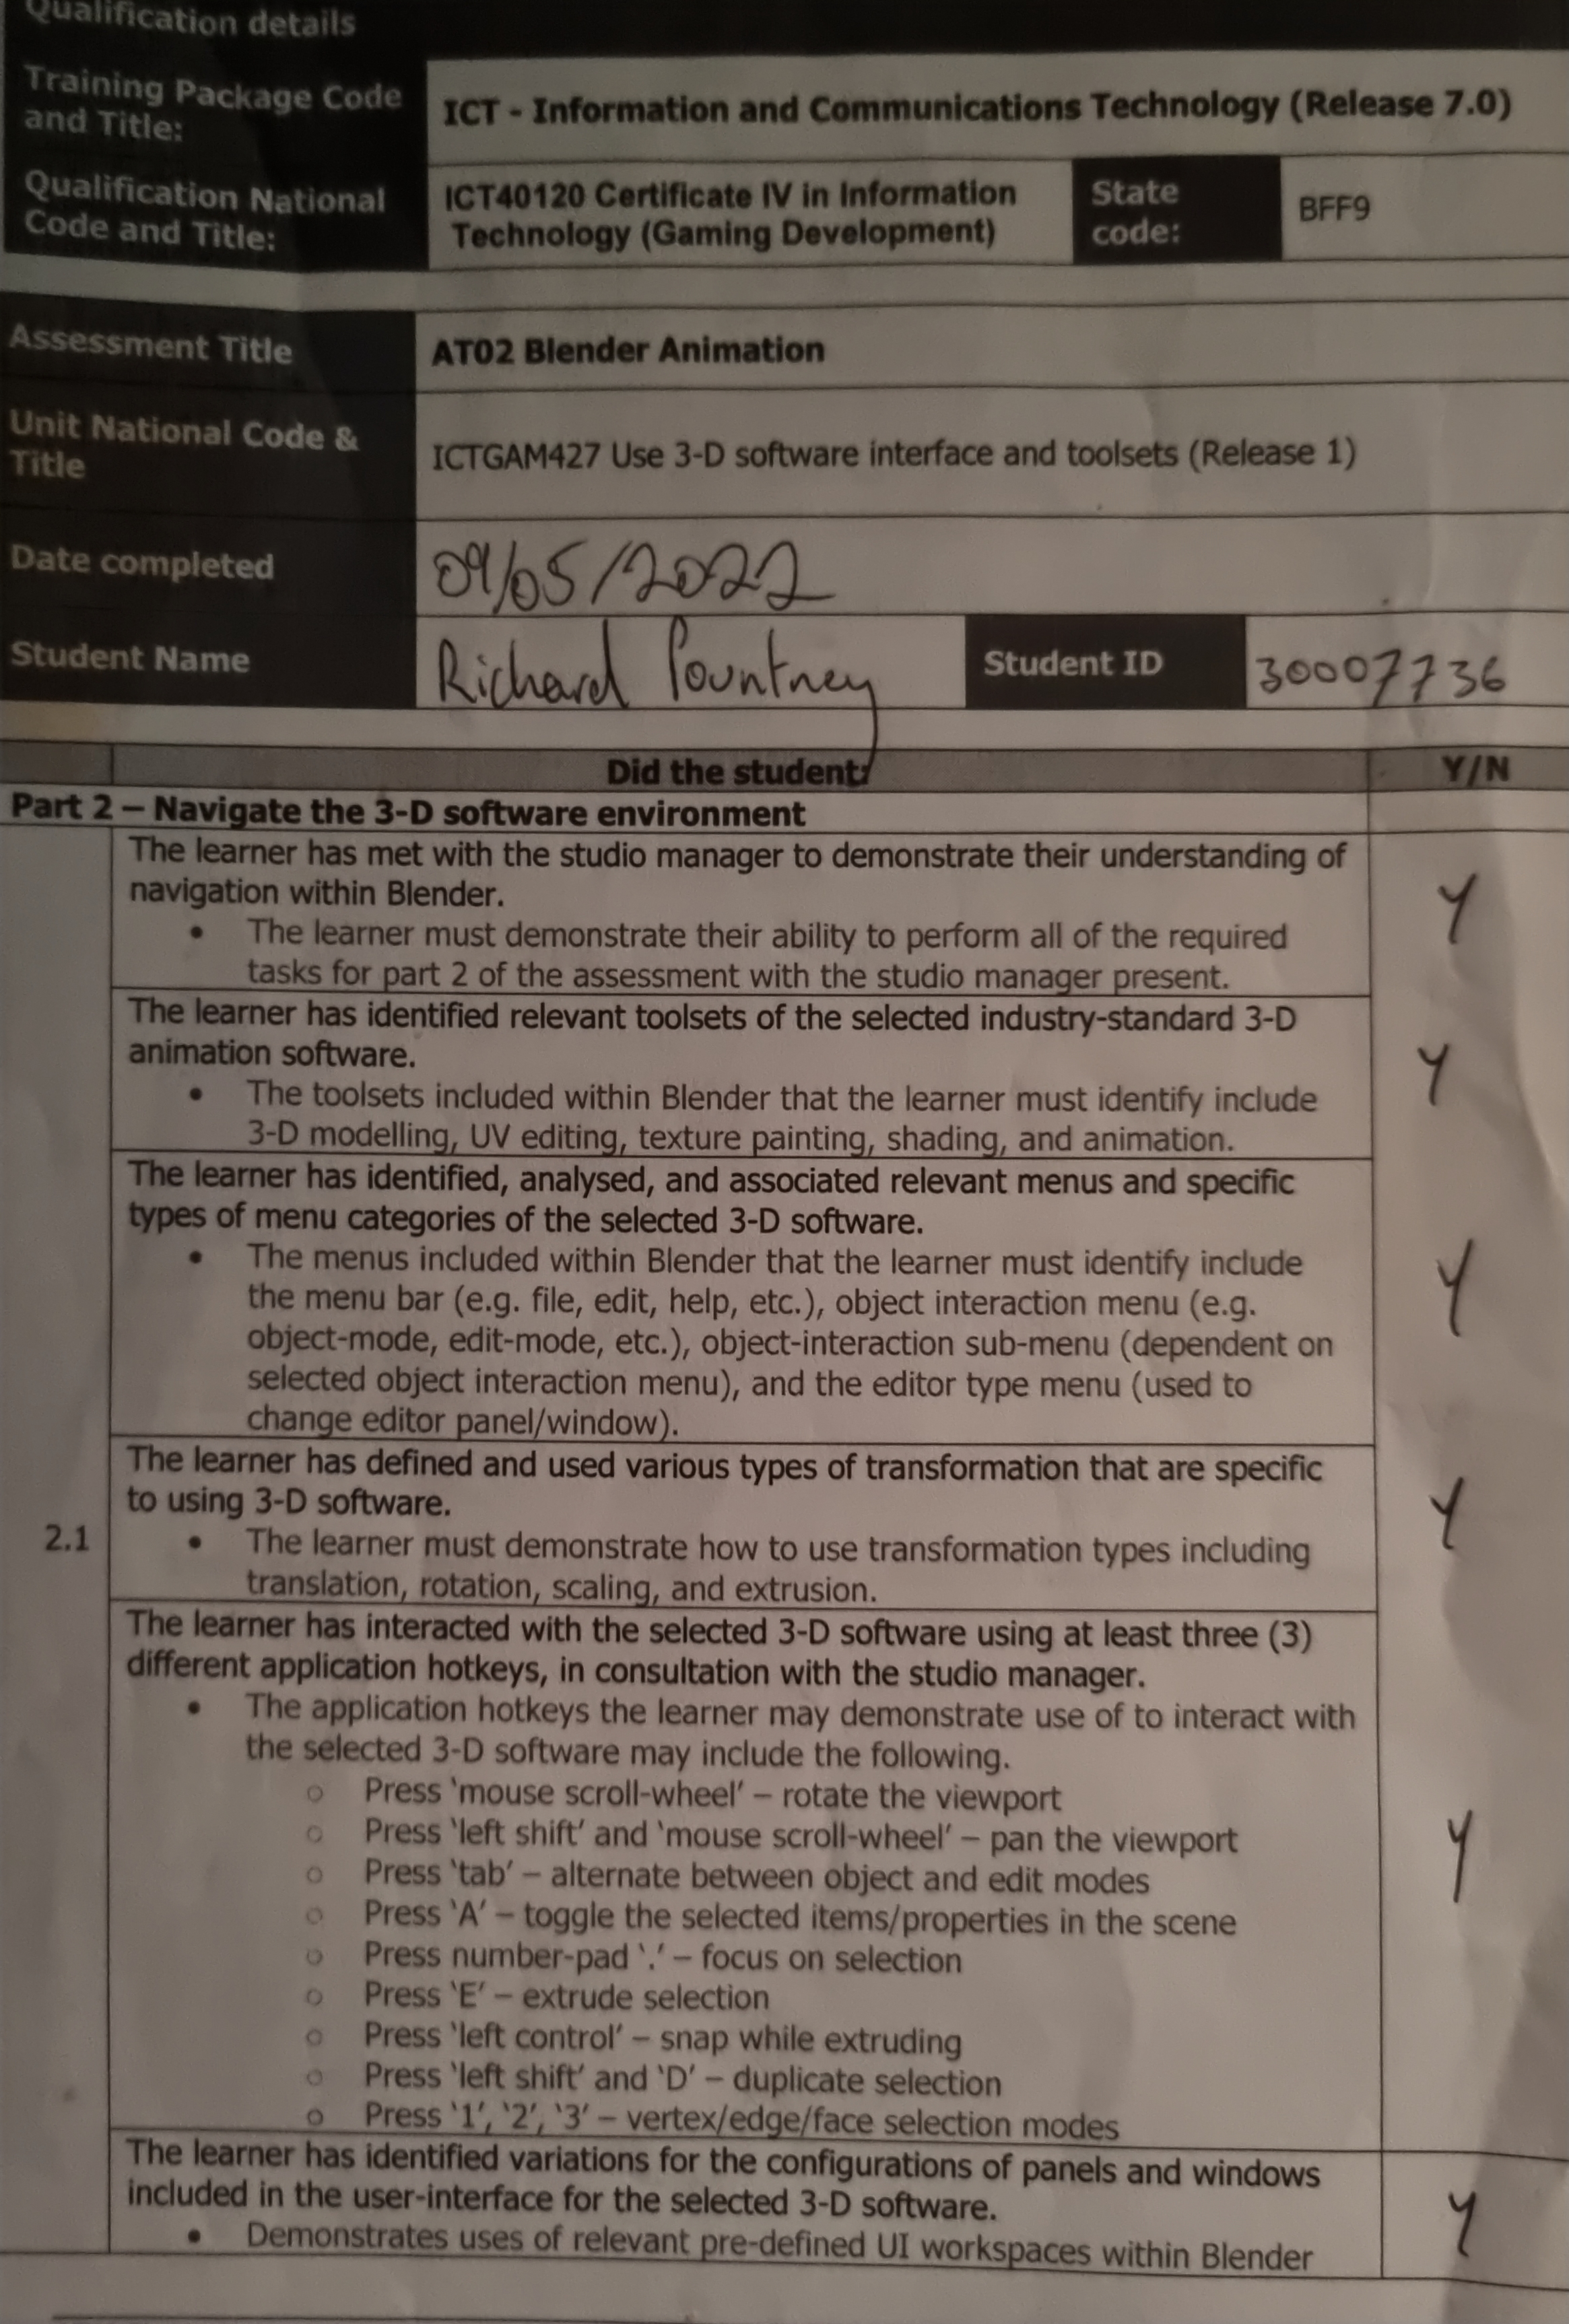 Qualification details
Training Package Code
and Title:
ICT - Information and Communications Technology (Release 7.0)
Qualification National
Code and Title:
ICT40120 Certificate IV in Information
Technology (Gaming Development)
State
code:
BFF9
Assessment Title
AT02 Blender Animation
Unit National Code &
Title
ICTGAM427 Use 3-D software interface and toolsets (Release 1)
Date completed
09/05/2022
Student Name
Richard Pountney
Student ID
30007736
Did the student:
Y/N
Part 2 – Navigate the 3-D software environment
The learner has met with the studio manager to demonstrate their understanding of
navigation within Blender.
• The learner must demonstrate their ability to perform all of the required
tasks for part 2 of the assessment with the studio manager present.
Y
The learner has identified relevant toolsets of the selected industry-standard 3-D
animation software.
• The toolsets included within Blender that the learner must identify include
3-D modelling, UV editing, texture painting, shading, and animation.
Y
The learner has identified, analysed, and associated relevant menus and specific
types of menu categories of the selected 3-D software.
• The menus included within Blender that the learner must identify include
the menu bar (e.g. file, edit, help, etc.), object interaction menu (e.g.
object-mode, edit-mode, etc.), object-interaction sub-menu (dependent on
selected object interaction menu), and the editor type menu (used to
change editor panel/window).
Y
2.1
The learner has defined and used various types of transformation that are specific
to using 3-D software.
• The learner must demonstrate how to use transformation types including
translation, rotation, scaling, and extrusion.
Y
The learner has interacted with the selected 3-D software using at least three (3)
different application hotkeys, in consultation with the studio manager.
• The application hotkeys the learner may demonstrate use of to interact with
the selected 3-D software may include the following.
○ Press ‘mouse scroll-wheel’ – rotate the viewport
○ Press ‘left shift’ and ‘mouse scroll-wheel’ – pan the viewport
○ Press ‘tab’ – alternate between object and edit modes
○ Press ‘A’ – toggle the selected items/properties in the scene
○ Press number-pad ‘.’ – focus on selection
○ Press ‘E’ – extrude selection
○ Press ‘left control’ – snap while extruding
○ Press ‘left shift’ and ‘D’ – duplicate selection
○ Press ‘1’, ‘2’, ‘3’ – vertex/edge/face selection modes
Y
The learner has identified variations for the configurations of panels and windows
included in the user-interface for the selected 3-D software.
• Demonstrates uses of relevant pre-defined UI workspaces within Blender
Y